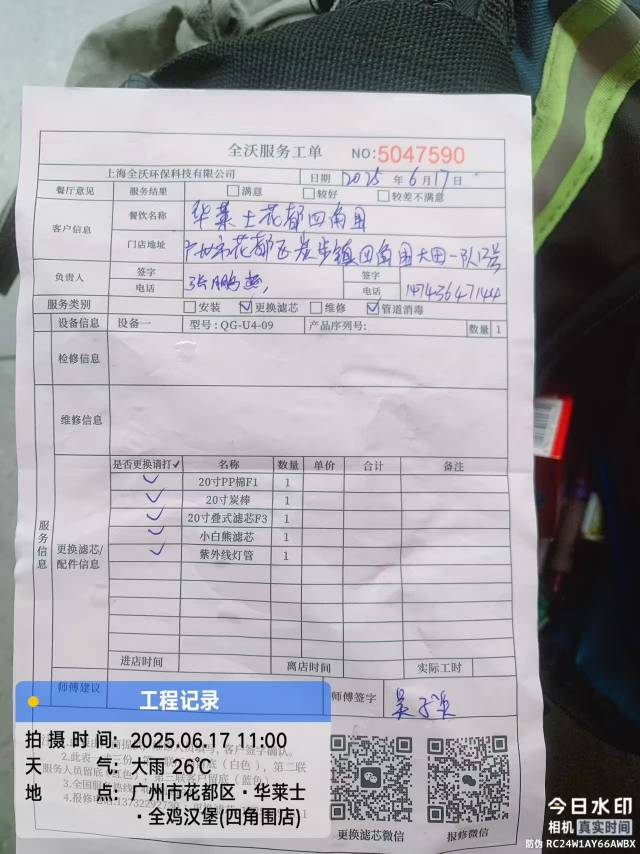 全沃服务工单 NO:5047590
上海全沃环保科技有限公司 日期 2025 年 6 月 17 日
餐厅意见 服务结果 满意 较好 较差不满意
客户信息 餐饮名称 华莱士花都四角围
门店地址 广州市花都区炭步镇四角围大田一队13号
负责人 签字 张鹏 签字
电话 电话 14743647144
服务类别 安装 ☑更换滤芯 维修 ☑管道消毒
设备信息 设备一 型号:QG-U4-09 产品序列号: 数量 1
检修信息
维修信息
服务信息
更换滤芯/配件信息
是否更换请打✓ 名称 数量 单价 合计 备注
✓ 20寸PP棉F1 1
✓ 20寸炭棒 1
✓ 20寸叠式滤芯F3 1
✓ 小白熊滤芯 1
✓ 紫外线灯管 1
进店时间 离店时间 实际工时
师傅建议 师傅签字 吴
工程记录
拍摄时间: 2025.06.17 11:00
天气: 大雨 26℃
地点: 广州市花都区·华莱士
·全鸡汉堡(四角围店)
更换滤芯微信 报修微信
今日水印
相机 真实时间
防伪 RC24W1AY66AWBX